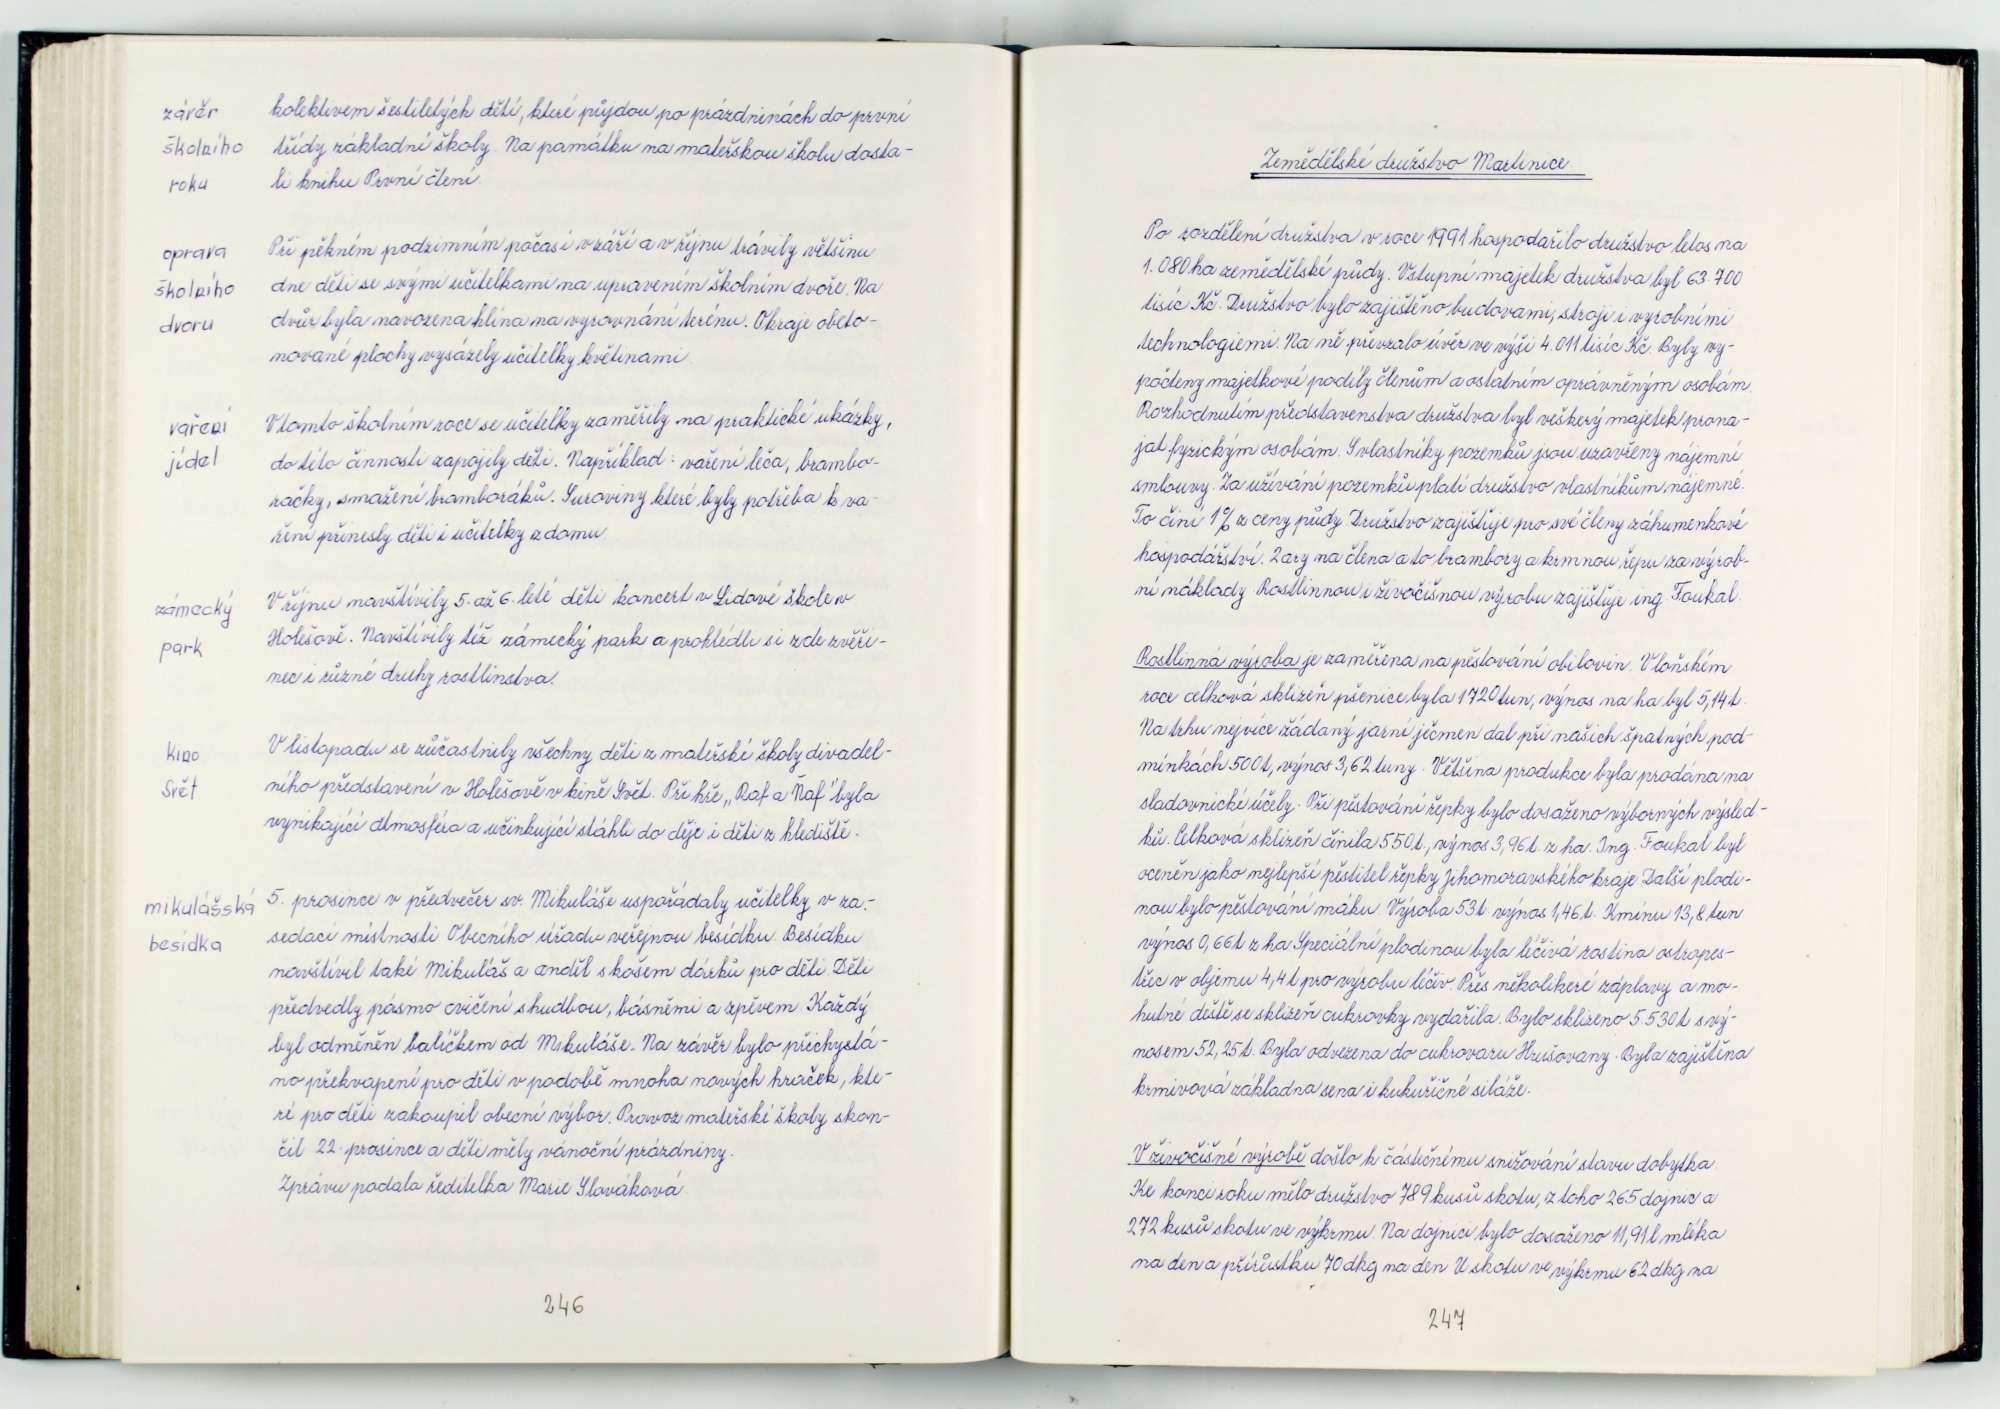 závěr kolektivem šestiletých dětí, které půjdou po prázdninách do první
školního třídy základní školy. Na památku na mateřskou školu dosta-
roku li knihu První čtení.
oprava Při pěkném podzimním počasí v září a v říjnu trávily většinu
školního dne děti se svými učitelkami na upraveném školním dvoře. Na
dvoru dvůr byla navozena hlína na vyrovnání terénu. Okraje obeto-
nované plochy vysázely učitelky květinami.
vaření V tomto školním roce se učitelky zaměřily na praktické ukázky,
jídel do této činnosti zapojily děti. Například: vaření léča, brambo-
račky, smažení bramboráků. Suroviny které byly potřeba k va-
ření přinesly děti i učitelky z domu.
zámecký V říjnu navštívily 5. až 6. leté děti koncert v Lidové škole v
park Holešově. Navštívily též zámecký park a prohlédli si zde zvěři-
nec i různé druhy rostlinstva.
kino V listopadu se zúčastnily všechny děti z mateřské školy divadel-
Svět ního představení v Holešově v kině Svět. Při hře „Raf a Ňaf" byla
vynikající atmosféra a účinkující stáhli do děje i děti z hlediště.
mikulášská 5. prosince v předvečer sv. Mikuláše uspořádaly učitelky v za-
besídka sedací místnosti Obecního úřadu veřejnou besídku. Besídku
navštívil také Mikuláš a anděl s košem dárků pro děti. Děti
předvedly pásmo cvičení s hudbou, básněmi a zpěvem. Každý
byl odměněn balíčkem od Mikuláše. Na závěr bylo přichystá-
no překvapení pro děti v podobě mnoha nových hraček, kte-
ré pro děti zakoupil obecní výbor. Provoz mateřské školy skon-
čil 22. prosince a děti měly vánoční prázdniny.
Zprávu podala ředitelka Marie Slováková
246
Zemědělské družstvo Martinice
Po rozdělení družstva v roce 1991 hospodařilo družstvo letos na
1.080 ha zemědělské půdy. Vstupní majetek družstva byl 63.700
tisíc Kč. Družstvo bylo zajištěno budovami, stroji i výrobními
technologiemi. Na ně převzalo úvěr ve výši 4.011 tisíc Kč. Byly vy-
počteny majetkové podíly členům a ostatním oprávněným osobám.
Rozhodnutím představenstva družstva byl veškerý majetek prona-
jat fyzickým osobám. S vlastníky pozemků jsou uzavřeny nájemní
smlouvy. Za užívání pozemků platí družstvo vlastníkům nájemné.
To činí 1% z ceny půdy. Družstvo zajišťuje pro své členy záhumenkové
hospodářství. 2 ary na člena a to brambory a krmnou řepu za výrob-
ní náklady. Rostlinnou i živočišnou výrobu zajišťuje ing. Foukal.
Rostlinná výroba je zaměřena na pěstování obilovin. V loňském
roce celková sklizeň pšenice byla 1720 tun, výnos na ha byl 5,14 t.
Na trhu nejvíce žádaný jarní ječmen dal při našich špatných pod-
mínkách 500 t, výnos 3,62 tuny. Většina produkce byla prodána na
sladovnické účely. Při pěstování řepky bylo dosaženo výborných výsled-
ků. Celková sklizeň činila 550 t., výnos 3,96 t. z ha. Ing. Foukal byl
oceněn jako nejlepší pěstitel řepky Jihomoravského kraje. Další plodi-
nou bylo pěstování máku. Výroba 53 t. výnos 1,46 t. Kmínu 13,8 tun
výnos 0,66 t z ha. Speciální plodinou byla léčivá rostina ostropes-
třec v objemu 4,4 t pro výrobu léčiv. Přes několikeré záplavy a mo-
hutné deště se sklizeň cukrovky vydařila. Bylo sklizeno 5.530 t s vý-
nosem 52,25 t. Byla odvezena do cukrovaru Hrušovany. Byla zajištěna
krmivová základna sena i kukuřičné siláže.
V živočišné výrobě došlo k částičnému snižování stavu dobytka.
Ke konci roku mělo družstvo 789 kusů skotu, z toho 265 dojnic a
272 kusů skotu ve výkrmu. Na dojnici bylo dosaženo 11,91 l mléka
na den a přírůstku 70 dkg na den. U skotu ve výkrmu 62 dkg na
247